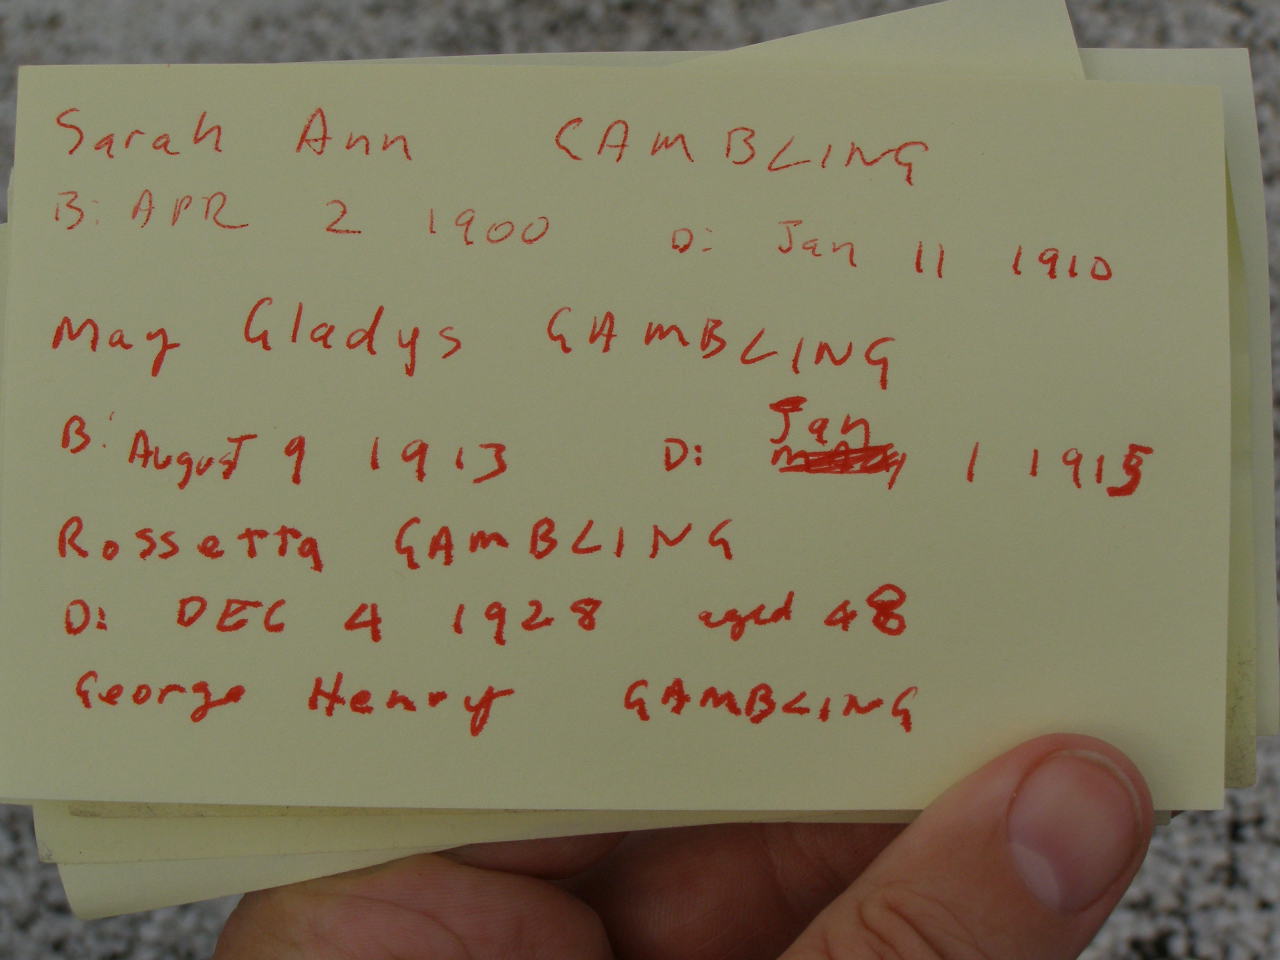 Sarah Ann GAMBLING
B: APR 2 1900 D: Jan 11 1910
May Gladys GAMBLING
B: August 9 1913 D: Jan 1 1915
Rossetta GAMBLING
D: DEC 4 1928 aged 48
George Henry GAMBLING